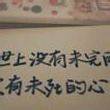 世上没有未完
有未死的心